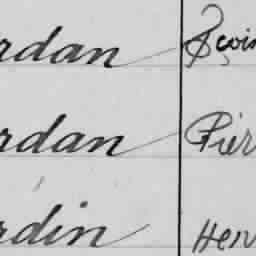 rdan
rdan Pier
rdin Hen